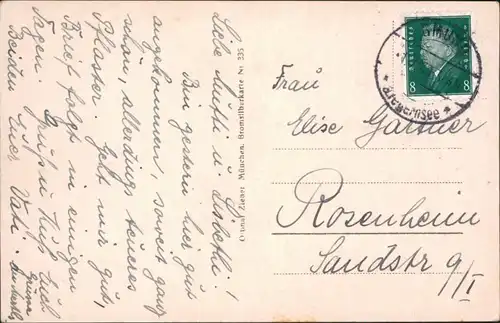 Liebe Mutti u. Lisbeth!
Bin gestern hier gut
angekommen, soweit ganz
schön, allerdings teueres
Pflaster. Geht mir gut,
Brief folgt in einigen
Tagen. Gruß u. Kuß Euch
Beiden Euer Vati.
Original Zieher München. Bromsilberkarte Nr. 335
DEUTSCHES REICH
8 8
Tegernsee
Frau
Elise Gartner
Rosenheim
Sandstr 9/I